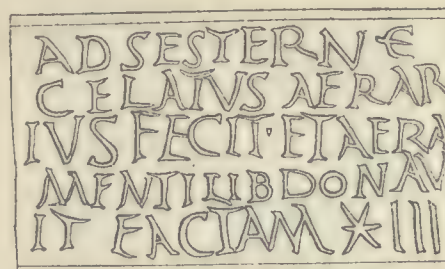 AD SESTERN Є
CELATVS AERAR
IVS FECIT·ET AERA
MENTI LIB DONAV
IT FACTAM X III